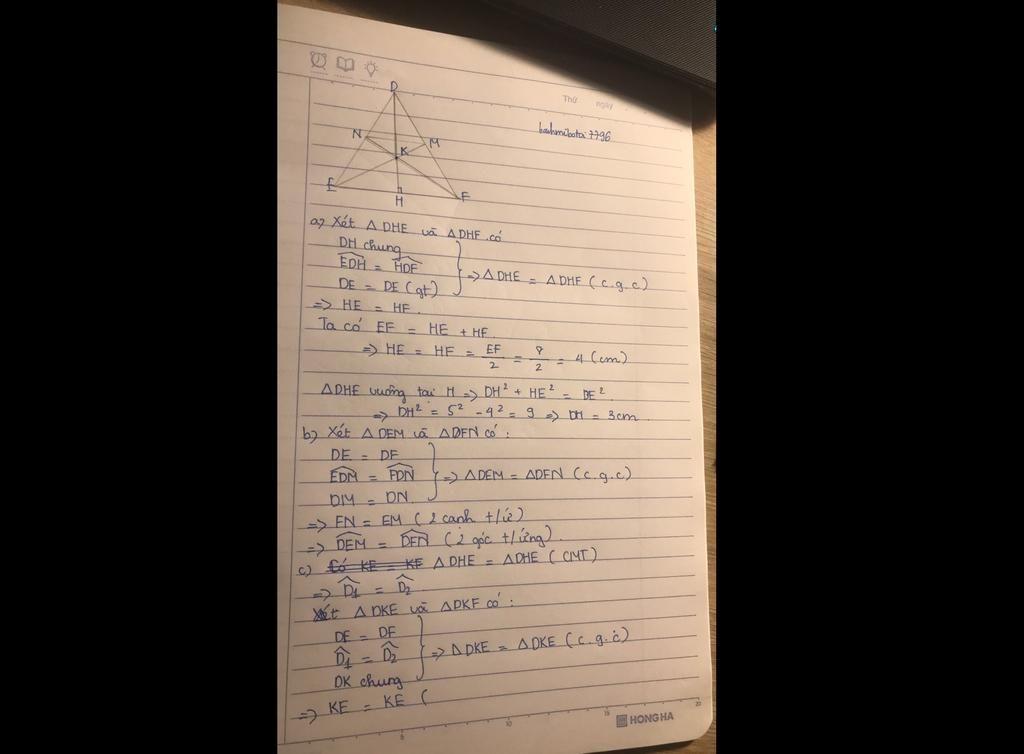 Thứ ngày
banhmibotoi7796
D
N
M
K
E
H
F
a) Xét △DHE và △DHF có
DH chung
EDH = HDF
DE = DE (gt)
=> △DHE = △DHF (c.g.c)
=> HE = HF.
Ta có EF = HE + HF
=> HE = HF = EF/2 = 8/2 = 4 (cm)
△DHE vuông tại H => DH² + HE² = DE².
=> DH² = 5² - 4² = 9 => DH = 3cm.
b) Xét △DEM và △DFN có:
DE = DF
EDM = FDN
DM = DN
=> △DEM = △DFN (c.g.c)
=> FN = EM (2 cạnh t/ứ)
=> DEM = DFN (2 góc t/ứng).
c) Có KE = KF △DHE = △DHE (CMT)
=> D1 = D2
Xét △DKE và △DKF có:
DE = DF
D1 = D2
DK chung
=> △DKE = △DKE (c.g.c)
=> KE = KE (
5 10 15 20
HONG HA